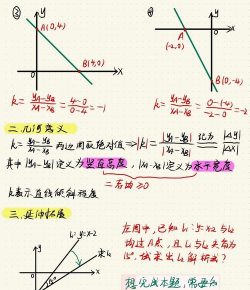 ③
④
y
A(0,4)
B(4,0)
0
x
y
A
(-2,0)
0
x
B(0,-4)
k=(yA-yB)/(xA-xB)=(4-0)/(0-4)=-1
k=(yA-yB)/(xA-xB)=(0-(-4))/(-2-0)=-2
二.几何意义
k=(yA-yB)/(xA-xB) 两边同取绝对值⇒|k|=|yA-yB|/|xA-xB| 记为 |△y|/|△x|
其中|yA-yB|定义为竖直高度,|xA-xB|定义为水平宽度
二者均≥0
k表示直线倾斜程度
三.延伸拓展
y
l₁:y=x-2
求l₂
15°
0
x
左图中,已知l₁:y=x-2与l₂
均过A点,且l₁与l₂夹角为
15°,试求出l₂解析式?
想完成本题,需要知